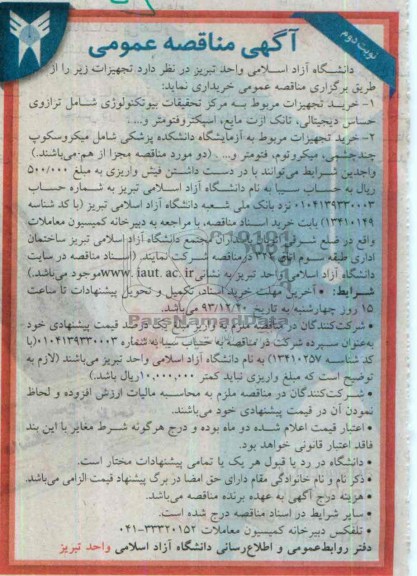 نوبت دوم
آگهی مناقصه عمومی
دانشگاه آزاد اسلامی واحد تبریز در نظر دارد تجهیزات زیر را از
طریق برگزاری مناقصه عمومی خریداری نماید:
۱- خرید تجهیزات مربوط به مرکز تحقیقات بیوتکنولوژی شامل ترازوی
حساس دیجیتالی، تانک ازت مایع، اسپکتروفتومتر و...
۲- خرید تجهیزات مربوط به آزمایشگاه دانشکده پزشکی شامل میکروسکوپ
چندچشمی، میکروتوم، فتومتر و... (دو مورد مناقصه مجزا از هم می‌باشند.)
واجدین شرایط می‌توانند با در دست داشتن فیش واریزی به مبلغ ۵۰۰/۰۰۰
ریال به حساب سیبا به نام دانشگاه آزاد اسلامی تبریز به شماره حساب
۰۱۰۴۱۳۹۳۳۰۰۰۳ نزد بانک ملی شعبه دانشگاه آزاد اسلامی تبریز (با کد شناسه
۱۳۴۱۰۱۴۹) بابت خرید اسناد مناقصه، با مراجعه به دبیرخانه کمیسیون معاملات
واقع در ضلع شرقی اتوبان پاسداران مجتمع دانشگاه آزاد اسلامی تبریز ساختمان
اداری طبقه سوم اتاق ۳۲۲ در مناقصه شرکت نمایند. (اسناد مناقصه در سایت
دانشگاه آزاد اسلامی واحد تبریز به نشانی www.iaut.ac.ir موجود می‌باشد.)
شرایط: • آخرین مهلت خرید اسناد، تکمیل و تحویل پیشنهادات تا ساعت
۱۵ روز چهارشنبه به تاریخ ۹۳/۱۲/۲۰ می‌باشد.
• شرکت‌کنندگان در مناقصه یک درصد قیمت پیشنهادی خود
به‌عنوان سپرده شرکت در مناقصه به حساب سیبا به شماره ۰۱۰۴۱۳۹۳۳۰۰۰۳ (با
کد شناسه ۱۳۴۱۰۲۵۷) به نام دانشگاه آزاد اسلامی واحد تبریز می‌باشند (لازم به
توضیح است که مبلغ واریزی نباید کمتر ۱۰,۰۰۰,۰۰۰ ریال باشد.)
• شرکت‌کنندگان در مناقصه ملزم به محاسبه مالیات ارزش افزوده و لحاظ
نمودن آن در قیمت پیشنهادی خود می‌باشند.
• اعتبار قیمت اعلام شده دو ماه بوده و درج هرگونه شرط مغایر با این بند
فاقد اعتبار قانونی خواهد بود.
• دانشگاه در رد یا قبول هر یک یا تمامی پیشنهادات مختار است.
• ذکر نام و نام خانوادگی مقام دارای حق امضا در برگ پیشنهاد قیمت الزامی می‌باشد.
• هزینه درج آگهی به عهده برنده مناقصه می‌باشد.
• سایر شرایط در اسناد مناقصه درج شده است.
• تلفکس دبیرخانه کمیسیون معاملات ۳۳۳۲۰۱۵۲-۰۴۱
دفتر روابط‌عمومی و اطلاع‌رسانی دانشگاه آزاد اسلامی واحد تبریز